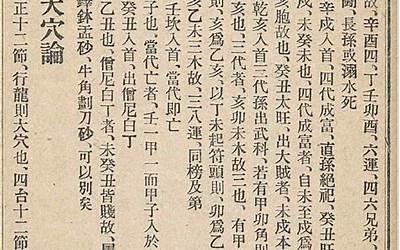 故、辛酉四、丁壬卯酉、六運、四六兄弟、
關、長孫或溺水死
辛戌入首、四代成富、直孫絶祀、癸丑旺
戌、未癸未也、四代成富者、自未至戌爲
亥胞故也、癸丑太旺、出大賊者、未戌本
乾亥入首三代孫出武科、若有甲卯角則
故也、三代者、亥卯未木故三也、有
亥乙未三木故、三八運、同榜及第
則、亥爲亥乙、以丁未起符頭則、卯爲乙
壬坎入首、當代即亡
子也、當代亡者、壬一甲一而甲子入於
癸丑入首、出僧尼白丁
乙丑也、僧尼白丁者、未癸丑皆賤故、
鉢盂砂、牛角劃刀砂、可以別矣
大穴論
正十二節、行龍則大穴也、四台十二節